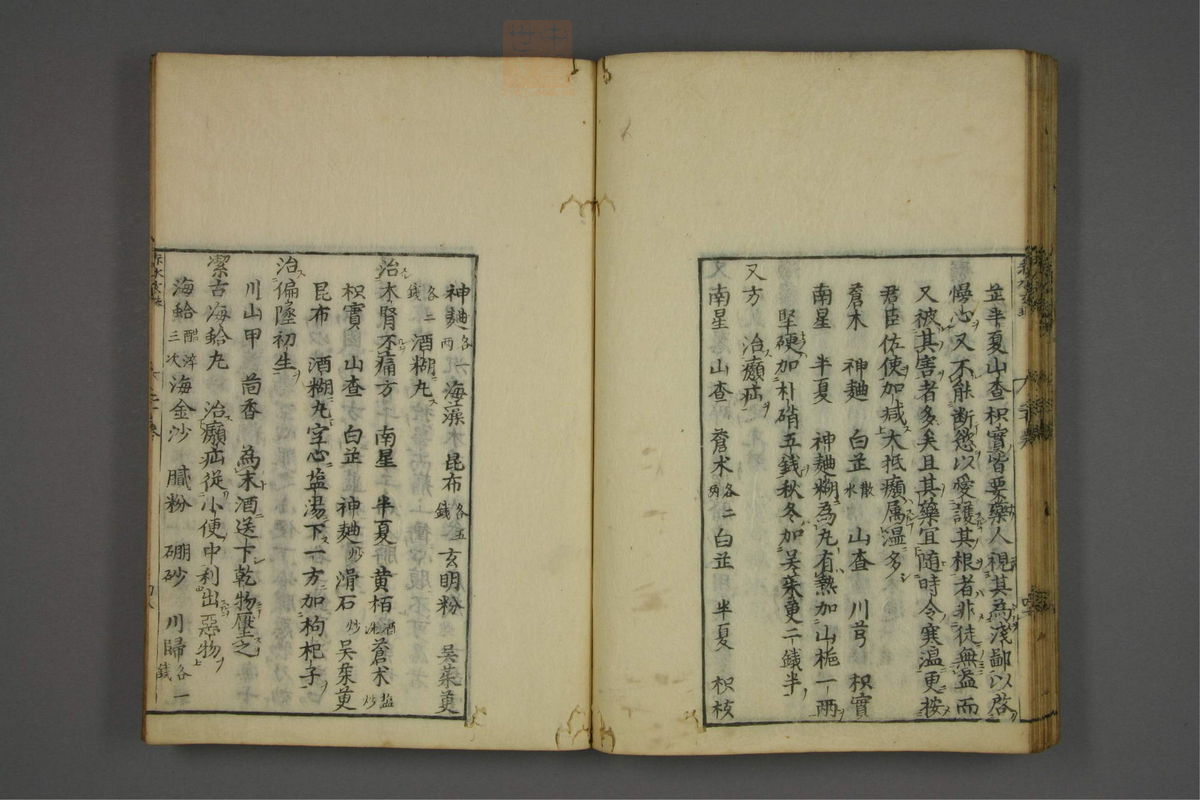 芷半夏山查枳實皆要藥人視其為淺鄙以啓
慢心又不能断慾以愛護其根者非徒無益而
又被其害者多矣且其藥宜隨時令寒温更按
君臣佐使加减大抵癩疝属温多
蒼术 神麯 白芷散水 山查 川芎 枳實
南星 半夏 神麯糊為丸有熱加山梔一兩
堅硬加朴硝五錢秋冬加吴茱萸二錢半
又方 治癩疝
南星 山查 蒼术各二兩 白芷 半夏 枳核
神麯各一兩 海藻 昆布各五錢 玄明粉 吴茱萸
各二錢 酒糊丸
治木腎不痛方 南星 半夏 黄栢酒洗 蒼术盐炒
枳實 山查 白芷 神麯炒 滑石炒 吴茱萸
昆布 酒糊丸空心盐湯下一方加枸杞子
治偏墜初生
川山甲 茴香 為末酒送下乾物壓之
潔古海蛤丸 治癩疝從小便中利出惡物
海蛤醋淬三次 海金沙 膩粉 硼砂 川歸各一錢